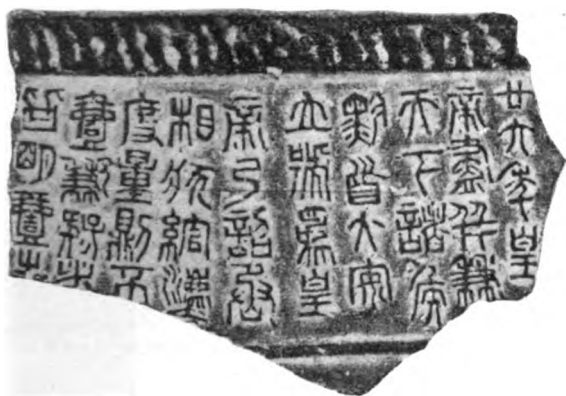 廿六年皇
帝盡并兼
天下諸侯
黔首大安
立號爲皇
帝乃詔丞
相狀綰灋
度量則不
壹歉疑者
皆明壹之